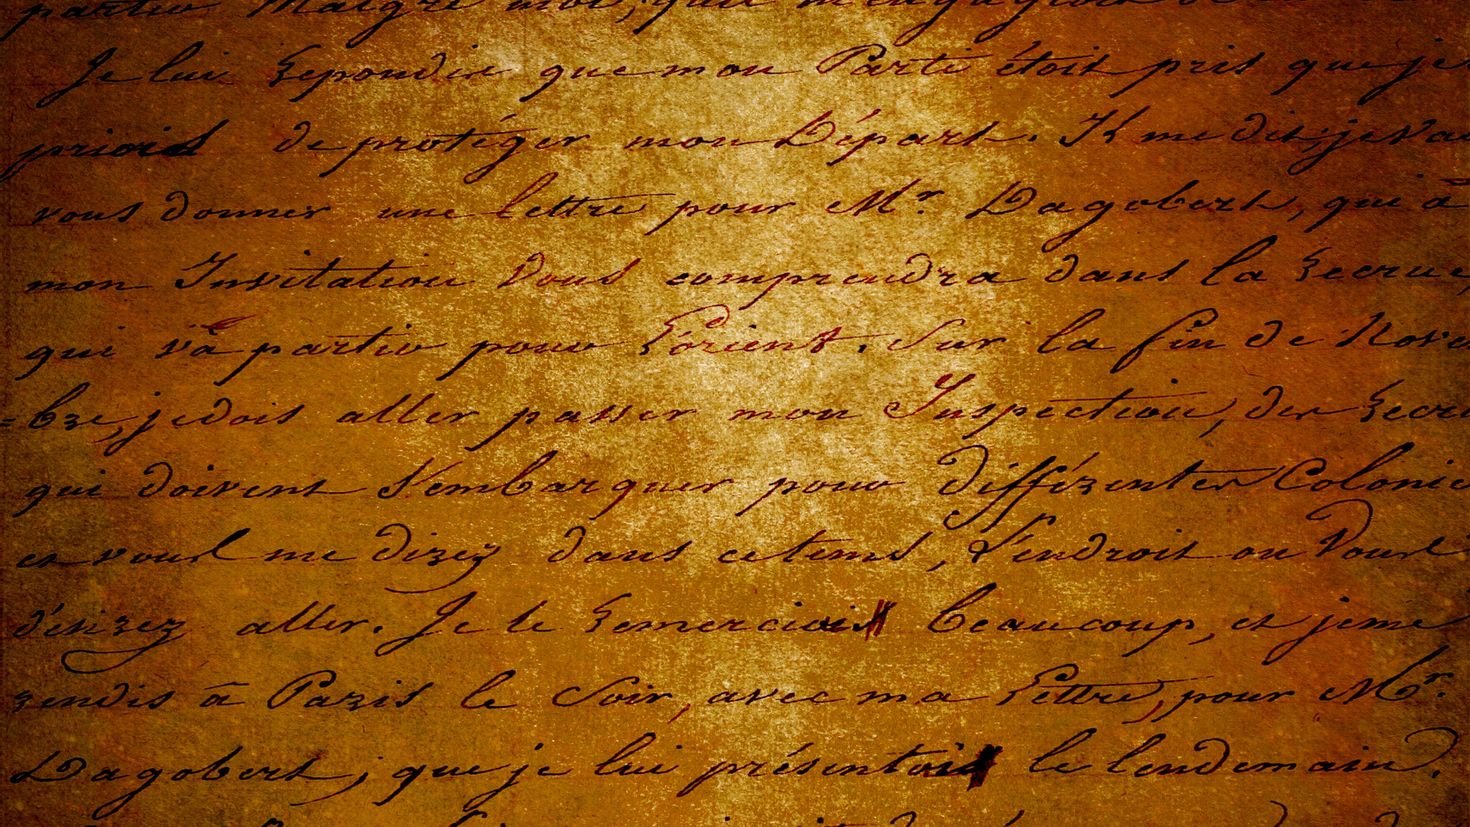 partir Malgré moi, qu'il m'engageoit
Je lui repondis que mon Parti étoit pris que je
priois de protéger mon Départ. Il me dit; je va
vous donner une lettre pour Mr. Dagobert, qui à
mon Invitation vous comprendra dans la recrue,
qui và partir pour L'orient. Sur la fin de Nove
=bre, je dois aller passer mon Inspection, des recr
qui doivent s'embarquer pour différentes Colonie
et vous me direz dans ce tems, L'endroit ou vous
désirez aller. Je le remerciais beaucoup, et je me
rendis à Paris le Soir, avec ma Lettre, pour Mr.
Dagobert, que je lui présentois le lendemain.